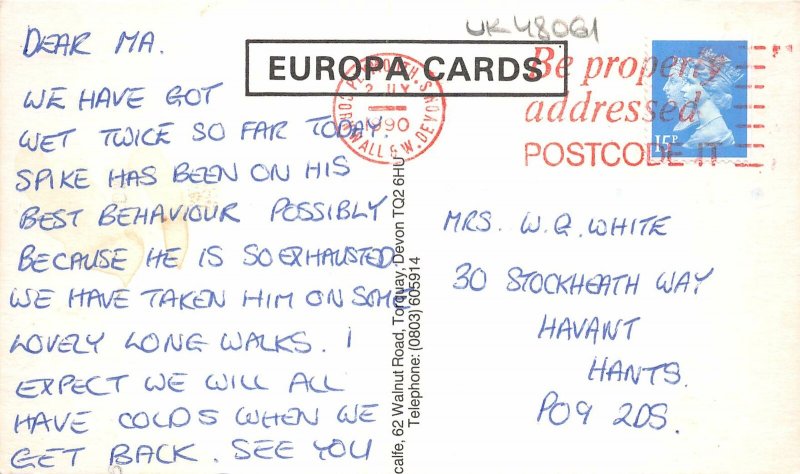 UK48061
EUROPA CARDS
DEAR MA.
WE HAVE GOT
WET TWICE SO FAR TODAY.
SPIKE HAS BEEN ON HIS
BEST BEHAVIOUR POSSIBLY
BECAUSE HE IS SO EXHAUSTED.
WE HAVE TAKEN HIM ON SOME
LOVELY LONG WALKS. I
EXPECT WE WILL ALL
HAVE COLDS WHEN WE
GET BACK. SEE YOU
calfe, 62 Walnut Road, Torquay, Devon TQ2 6HU
Telephone: (0803) 605914
PLYMOUTH.
1990
CORNWALL & W. DEVON
Be properly
addressed
POSTCODE IT
15P
MRS. W.G. WHITE
30 STOCKHEATH WAY
HAVANT
HANTS.
PO9 2DS.